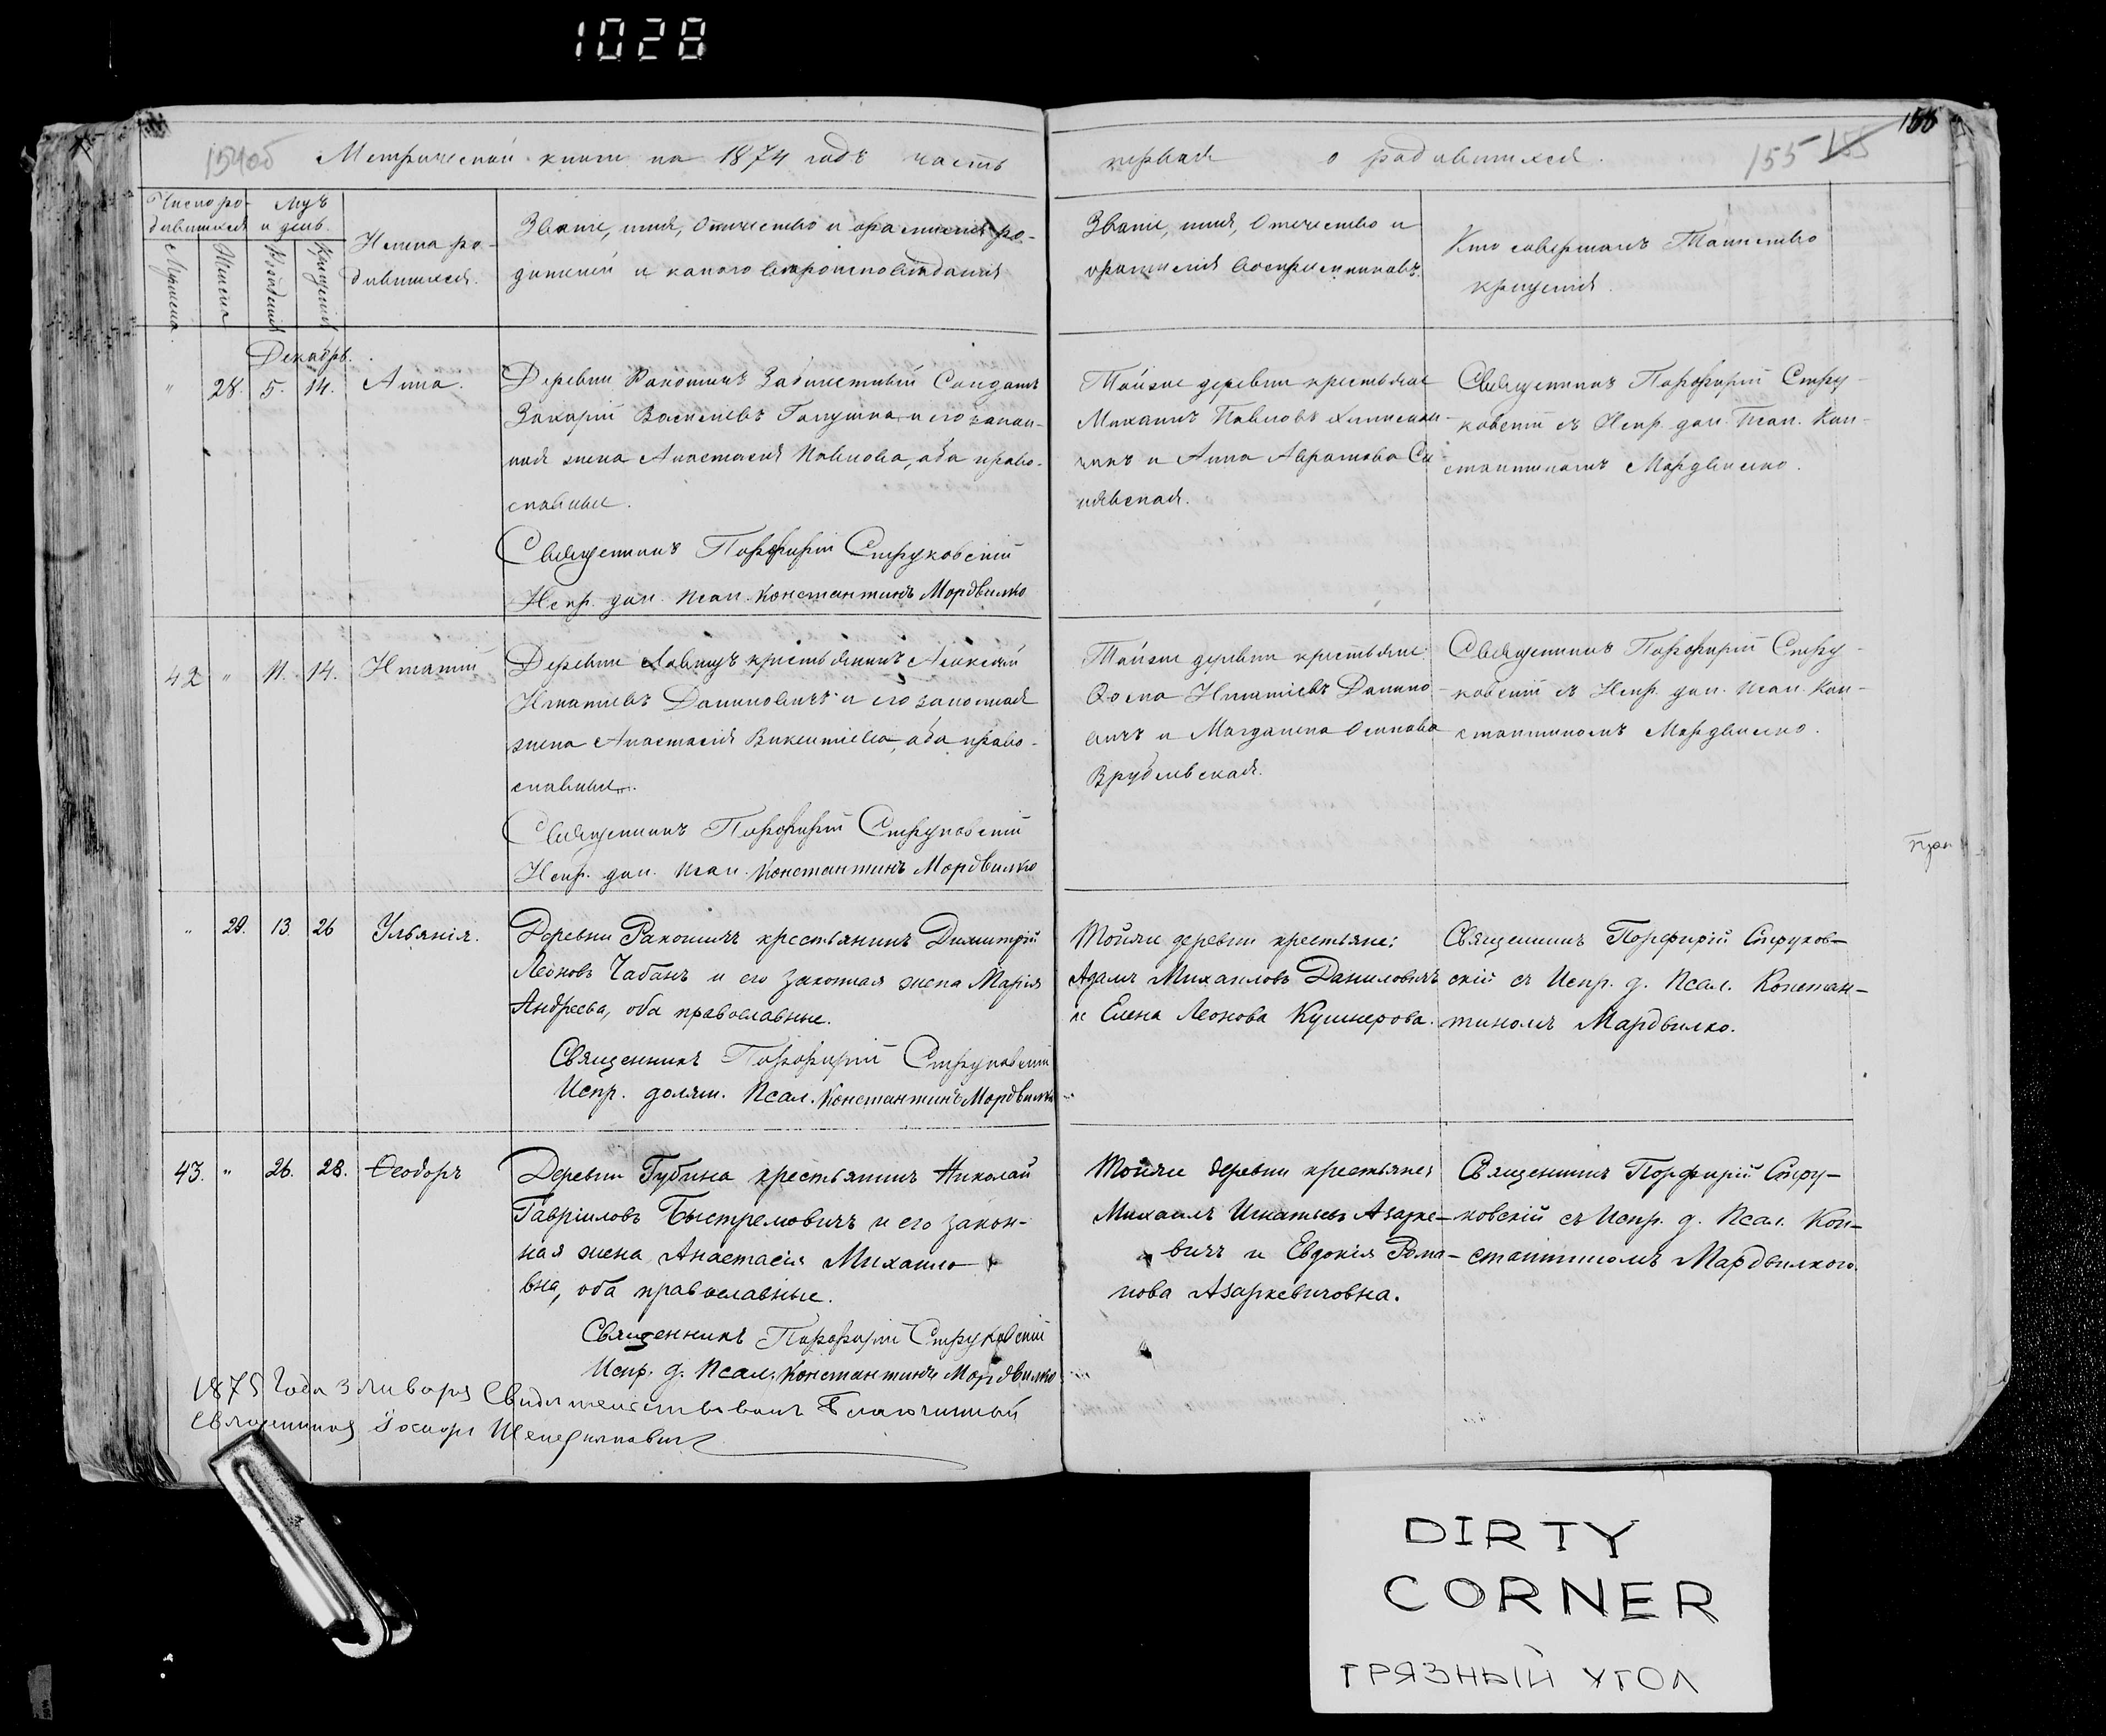 1028
154об Метрической книги на 1874 годъ часть первая о родившихся. 155 155
155
Число ро-
дившихся
Мць
и день.
Имена ро-
дившихся.
Званіе, имя, отчество и фамилія ро-
дителей и какого вѣроисповѣданія
Званіе, имя, отчество и
фамилія воспріемниковъ.
Кто совершалъ Таинство
крещенія.
Мужеска.
Женска
Рожденія
Крещенія
Декабрь.
" 28. 5. 14. Анна.
Деревни Ракошичъ Солдатъ
Захарій Васильевъ Галушка и его закон-
ная жена Анастасія Павлова, оба право-
славные.
Священникъ Порфирій Струковскій
Испр. дол. Псал. Константинъ Мордвилко
Тойже деревни крестьяне
Михаилъ Павловъ
и Анна Аврамова Си-
нявская.
Священникъ Порфирій Стру-
ковскій съ Испр. дол. Псал. Кон-
стантиномъ Мордвилко.
42 " 11. 14. Игнатій
Деревни крестьянинъ Алексѣй
Игнатіевъ Даниловичъ и его законная
жена Анастасія Викентіева, оба право-
славные.
Священникъ Порфирій Струковскій
Испр. дол. Псал. Константинъ Мордвилко
Тойже деревни крестьяне:
Ѳома Игнатіевъ Данило-
вичъ и Магдалена Осипова
Врублевская.
Священникъ Порфирій Стру-
ковскій съ Испр. дол. Псал. Кон-
стантиномъ Мордвилко.
" 29. 13. 26 Ульянія.
Деревни Ракошичъ крестьянинъ Димитрій
Леоновъ Чабанъ и его законная жена Марія
Андреева, оба православные.
Священникъ Порфирій Струковскій
Испр. долж. Псал. Константинъ Мордвилко
Тойже деревни крестьяне:
Адамъ Михаиловъ Даниловичъ
и Елена Леонова Кушнерова.
Священникъ Порфирій Струков-
скій съ Испр. д. Псал. Констан-
тиномъ Мардвилко.
43. " 26. 28. Ѳеодоръ
Деревни Губина крестьянинъ Николай
Гавріиловъ Быстремовичъ и его закон-
ная жена Анастасія Михаило-
вна, оба православные.
Священникъ Порфирій Струковскій
Испр. д. Псал. Константинъ Мордвилко
Тойже деревни крестьяне:
Михаилъ Игнатьевъ Азарке-
вичъ и Евдокія Рома-
нова Азаркевичовна.
Священникъ Порфирій Стру-
ковскій съ Испр. д. Псал. Кон-
стантиномъ Мардвилкого.
1875 Года 3 Января Свидѣтельствовалъ Благочинный
Священникъ Іосифъ
DIRTY
CORNER
ГРЯЗНЫЙ УГОЛ